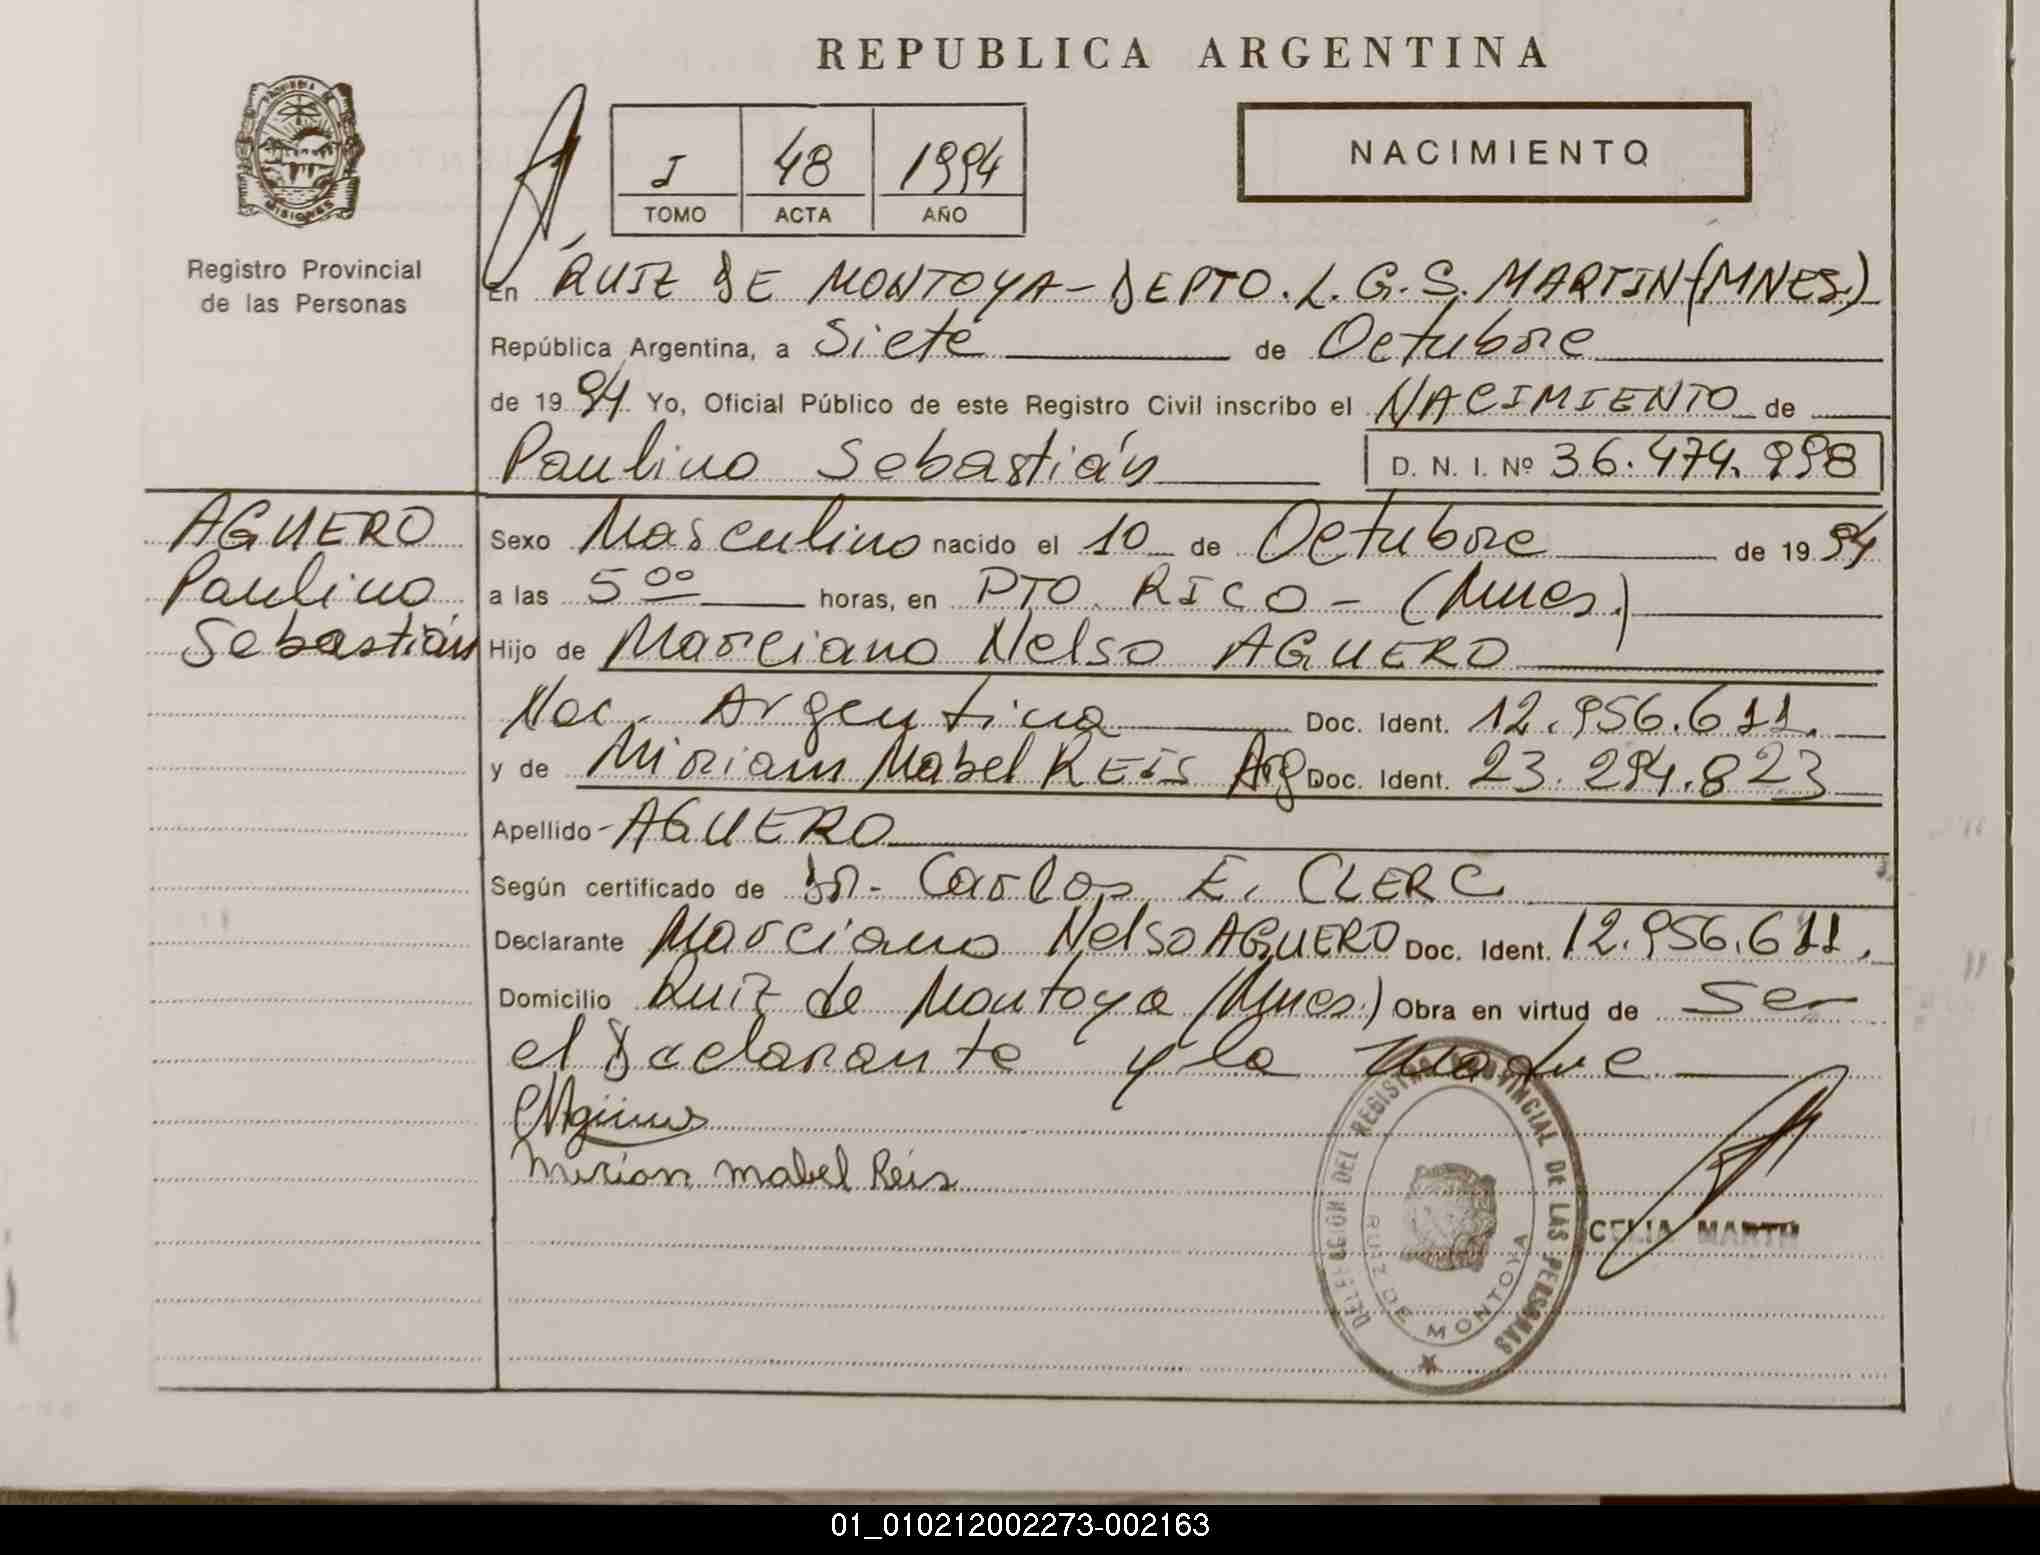 REPUBLICA ARGENTINA
MISIONES
Registro Provincial
de las Personas
I 48 1994
TOMO ACTA AÑO
NACIMIENTO
En RUIZ DE MONTOYA - DEPTO. L. G. S. MARTIN (MNES.)
República Argentina, a Siete de Octubre
de 1994 Yo, Oficial Público de este Registro Civil inscribo el NACIMIENTO de
Paulino Sebastián D. N. I. Nº 36.474.998
AGUERO
Paulino
Sebastián
Sexo Masculino nacido el 10 de Octubre de 1994
a las 5 00 horas, en PTO. RICO - (Mnes.)
Hijo de Marciano Nelso AGUERO
Nac. Argentina Doc. Ident. 12.956.611.
y de Miriam Mabel REIS Arg Doc. Ident. 23.294.823
Apellido - AGUERO
Según certificado de Dr. Carlos E. CLERC
Declarante Marciano Nelso AGUERO Doc. Ident. 12.956.611.
Domicilio Ruiz de Montoya (Mnes.) Obra en virtud de Ser
el Declarante y la Madre
Mirian Mabel Reis
DELEGACION DEL REGISTRO PROVINCIAL DE LAS PERSONAS
RUIZ DE MONTOYA
CELIA MARTH
01_010212002273-002163